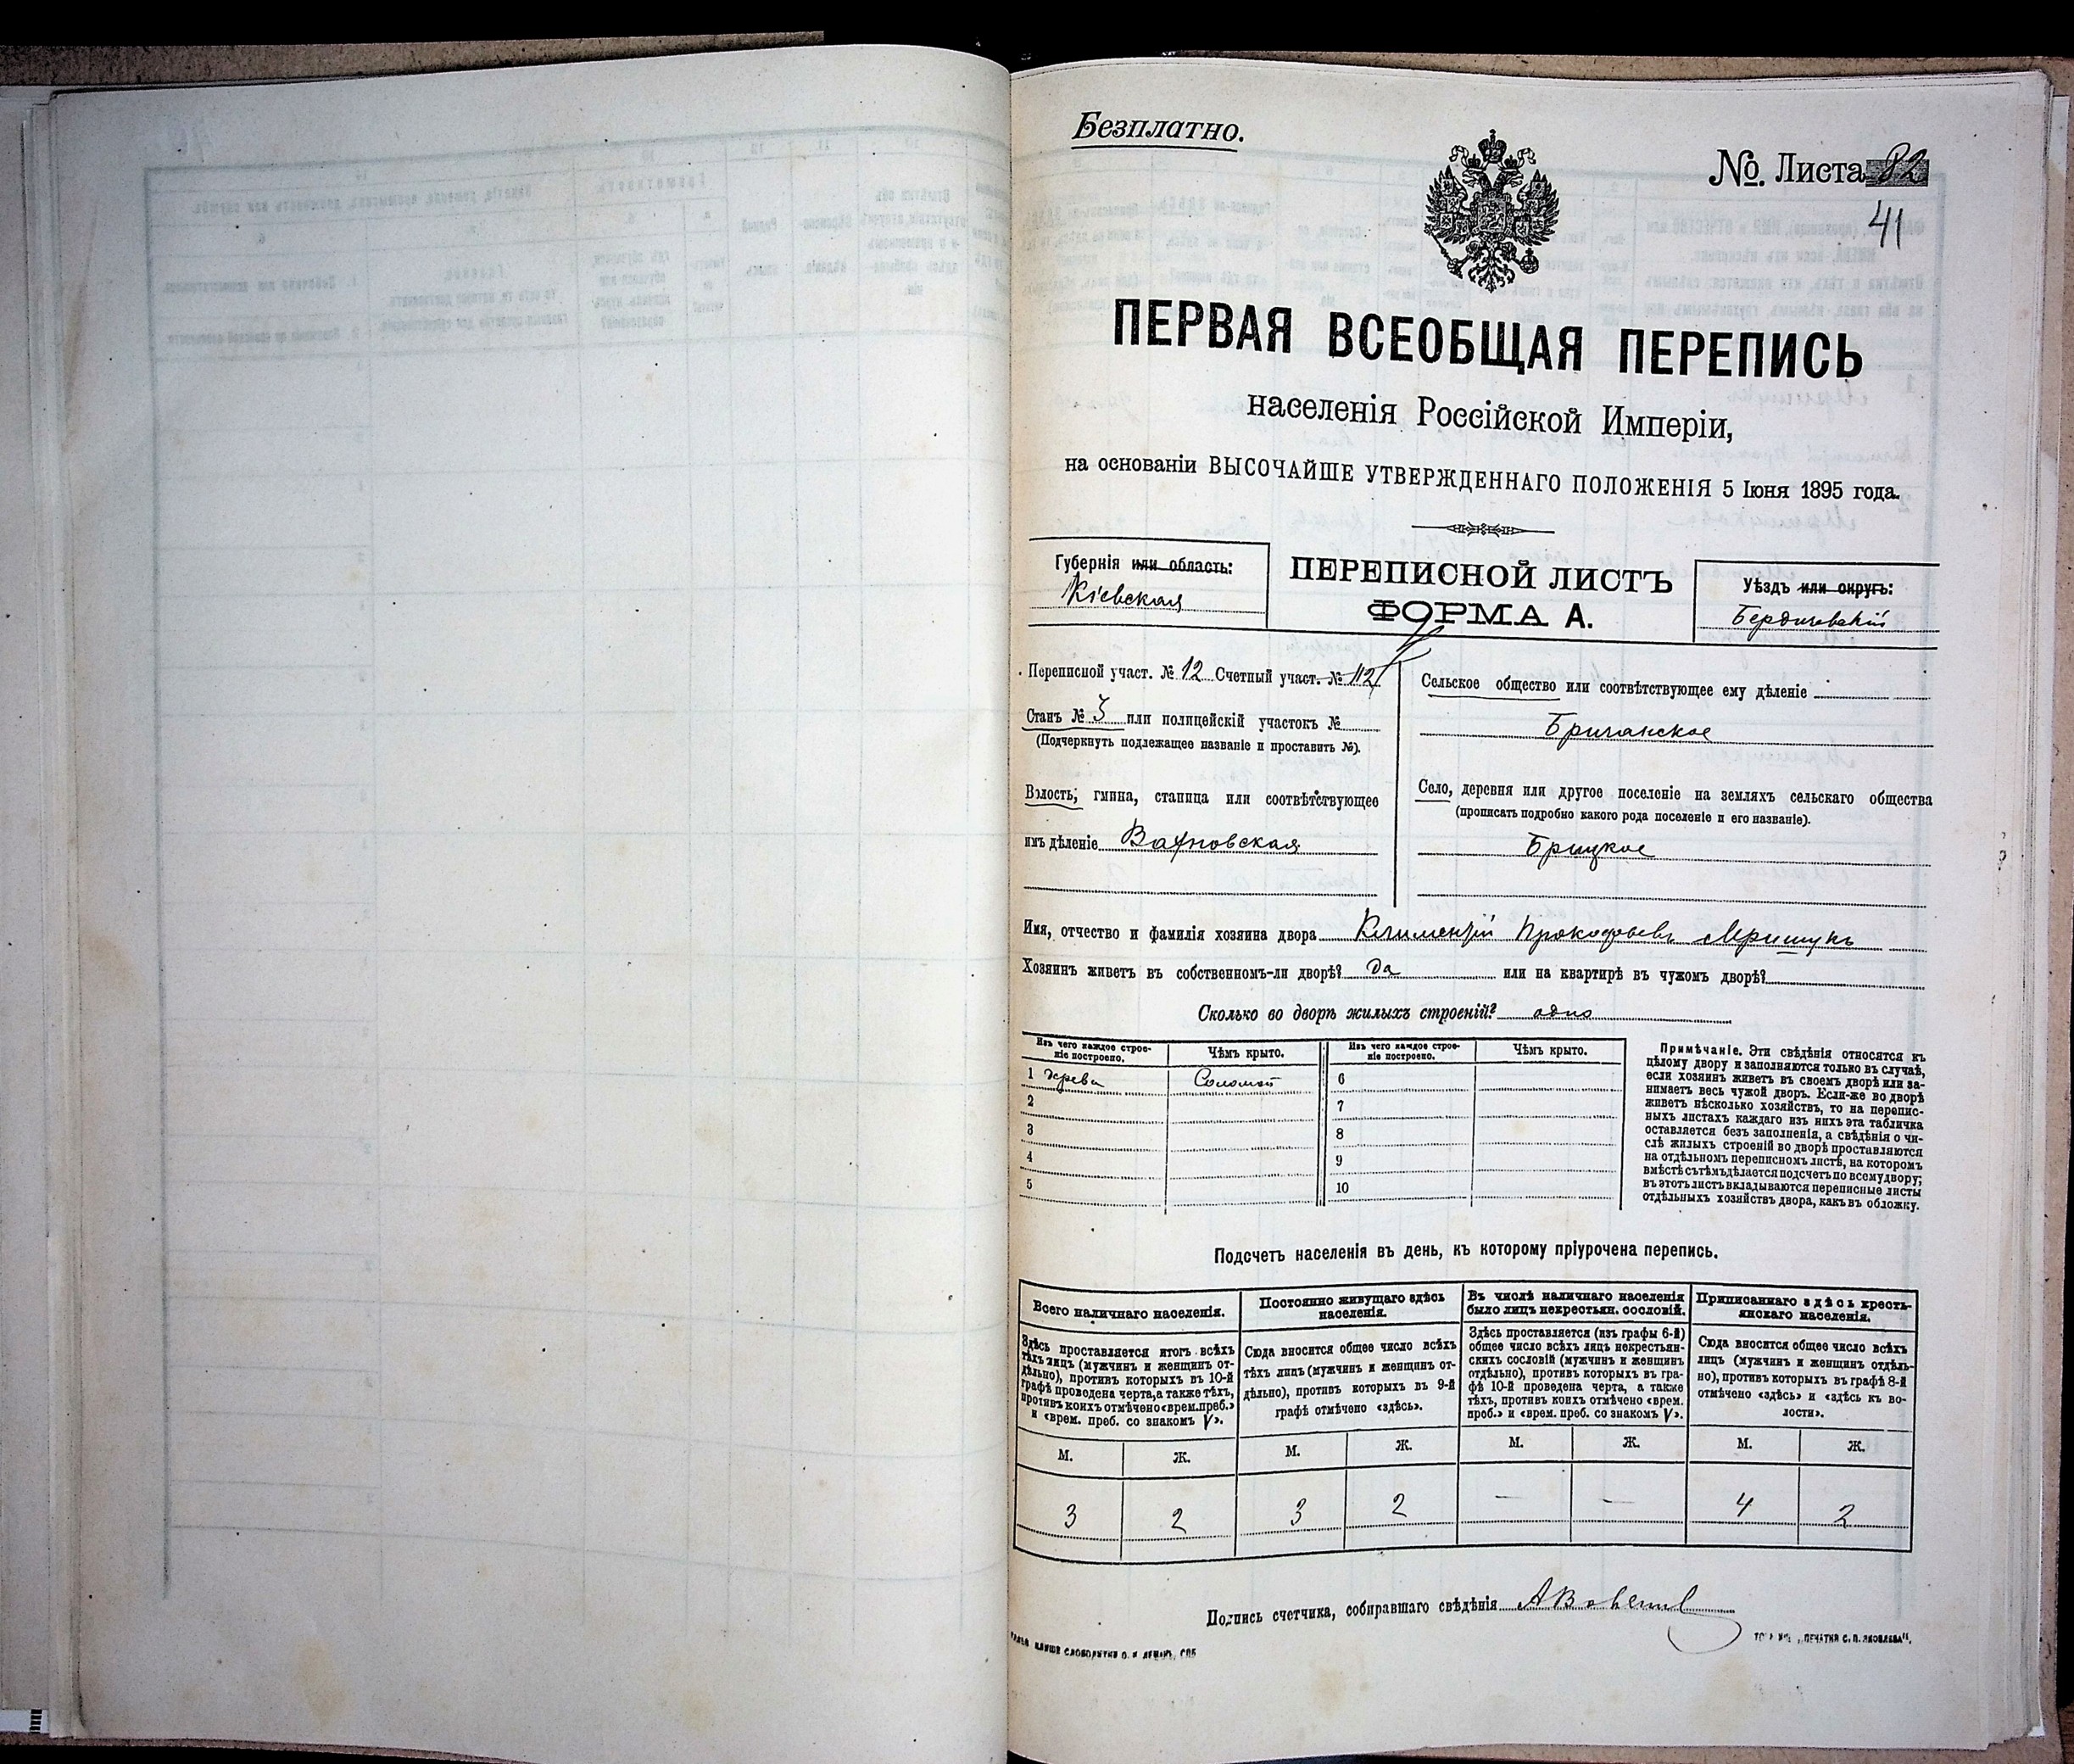 Безплатно.
№. Листа 82
41
ПЕРВАЯ ВСЕОБЩАЯ ПЕРЕПИСЬ
населенія Россійской Имперіи,
на основаніи ВЫСОЧАЙШЕ УТВЕРЖДЕННАГО ПОЛОЖЕНІЯ 5 Іюня 1895 года.
Губернія или область:
Кіевская
ПЕРЕПИСНОЙ ЛИСТЪ
ФОРМА А.
Уѣздъ или округъ:
Бердичевскій
Переписной участ. № 12 Счетный участ. № 112
Станъ № 3 или полицейскій участокъ №
(Подчеркнуть подлежащее названіе и проставить №).
Волость, гмина, станица или соотвѣтствующее
имъ дѣленіе Вахновская
Сельское общество или соотвѣтствующее ему дѣленіе
Село, деревня или другое поселеніе на земляхъ сельскаго общества
(прописать подробно какого рода поселеніе и его названіе).
Брицкое
Имя, отчество и фамилія хозяина двора Климентій Прокофьевъ
Хозяинъ живетъ въ собственномъ-ли дворѣ? да или на квартирѣ въ чужомъ дворѣ?
Сколько во дворѣ жилыхъ строеній? одно
Изъ чего каждое строе-
ніе построено.
Чѣмъ крыто.
Изъ чего каждое строе-
ніе построено.
Чѣмъ крыто.
1 дерева Соломой 6
2 7
3 8
4 9
5 10
Примѣчаніе. Эти свѣдѣнія относятся къ
цѣлому двору и заполняются только въ случаѣ,
если хозяинъ живетъ въ своемъ дворѣ или за-
нимаетъ весь чужой дворъ. Если-же во дворѣ
живетъ нѣсколько хозяйствъ, то на перепис-
ныхъ листахъ каждаго изъ нихъ эта табличка
оставляется безъ заполненія, а свѣдѣнія о чи-
слѣ жилыхъ строеній во дворѣ проставляются
на отдѣльномъ переписномъ листѣ, на которомъ
вмѣстѣ съ тѣмъ дѣлается подсчетъ по всему двору;
въ этотъ листъ вкладываются переписные листы
отдѣльныхъ хозяйствъ двора, какъ въ обложку.
Подсчетъ населенія въ день, къ которому пріурочена перепись.
Всего наличнаго населенія.
Здѣсь проставляется итогъ всѣхъ
тѣхъ лицъ (мужчинъ и женщинъ от-
дѣльно), противъ которыхъ въ 10-й
графѣ проведена черта, а также тѣхъ,
противъ коихъ отмѣчено «врем. преб.»
и «врем. преб. со знакомъ V».
Постоянно живущаго здѣсь
населенія.
Сюда вносится общее число всѣхъ
тѣхъ лицъ (мужчинъ и женщинъ от-
дѣльно), противъ которыхъ въ 9-й
графѣ отмѣчено «здѣсь».
Въ числѣ наличнаго населенія
было лицъ некрестьян. сословій.
Здѣсь проставляется (изъ графы 6-й)
общее число всѣхъ лицъ некрестьян-
скихъ сословій (мужчинъ и женщинъ
отдѣльно), противъ которыхъ въ гра-
фѣ 10-й проведена черта, а также
тѣхъ, противъ коихъ отмѣчено «врем.
преб.» и «врем. преб. со знакомъ V».
Приписаннаго здѣсь кресть-
янскаго населенія.
Сюда вносится общее число всѣхъ
лицъ (мужчинъ и женщинъ отдѣль-
но), противъ которыхъ въ графѣ 8-й
отмѣчено «здѣсь» и «здѣсь къ во-
лости».
М. Ж. М. Ж. М. Ж. М. Ж.
3 2 3 2 — — 4 2
Подпись счетчика, собиравшаго свѣдѣнія